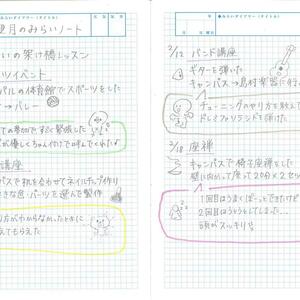 望月のみらいノート
いの架け橋レッスン
ツイベント
パルの体育館でスポーツをした
→バレー
ての参加で、すごく緊張した
が優しく、ちゃん付けで呼んでくれた
講座
パスで机を合わせてネイルチップ作り
きな色・パーツを選んで製作
り方がわからなかったときに
えてもらえた
みらいダイアリー(タイトル)
2/12 バンド講座
ギターを弾いた
キャンパス→島村楽器に
チューニングのやり方を教えて
ドレミファソラシドを弾けた
2/18 座禅
キャンパスで椅子座禅をした
壁に向かって座って20分×2セット
1回目はうまくぼーっとできたけど
2回目はうとうとしてしまった...
頭がスッキリ